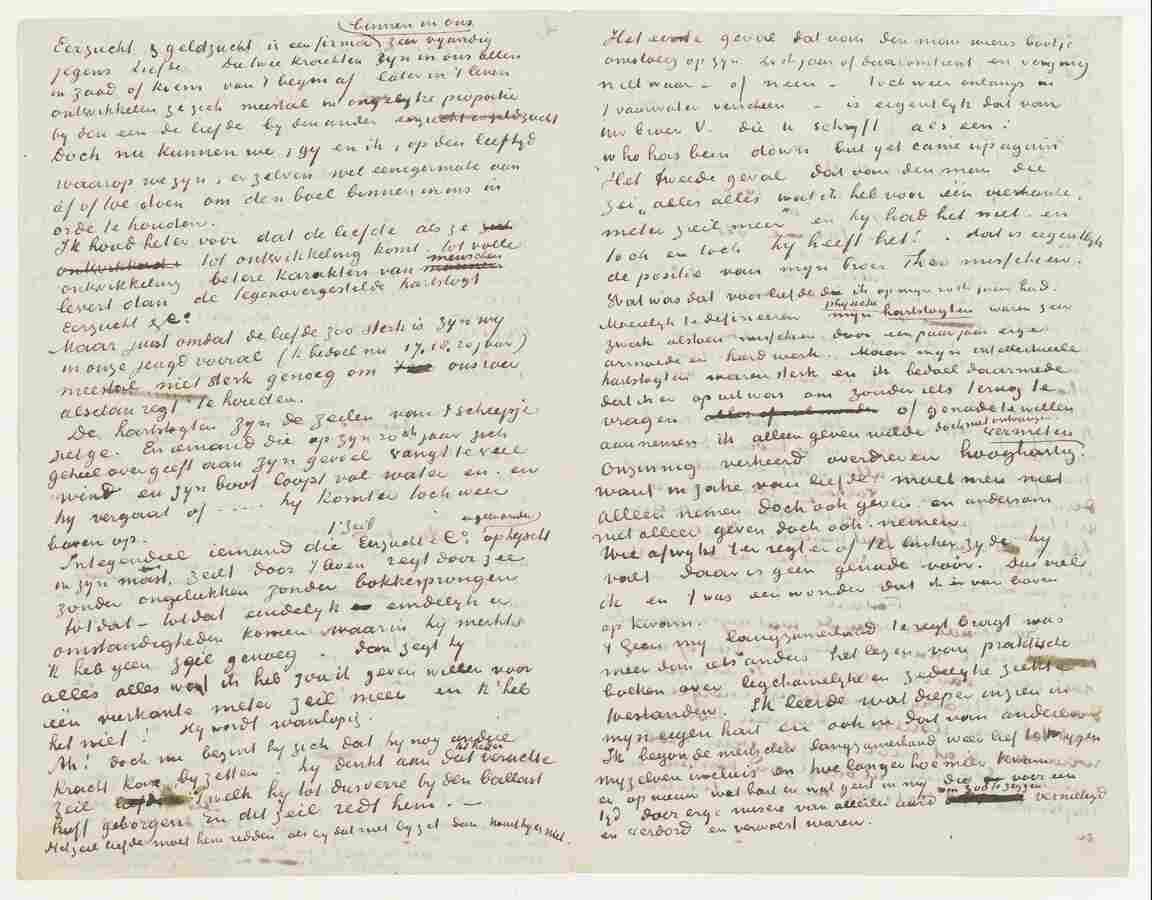 binnen in ons
Eerzucht & geldzucht is een firma zeer vyandig
jegens liefde. Die twee krachten zyn in ons allen
in zaad of kiem van 't begin af later in 't leven
ontwikkelen ze zich meestal in ongelyke proportie
by den een de liefde by den ander eerzucht en geldzucht
Doch nu kunnen we, gy en ik, op den leeftyd
waarop we zyn, er zelven wel eenigermate aan
af of toe doen om den boel binnen in ons in
orde te houden.
Ik houd het er voor dat de liefde als ze
ontwikkeld tot ontwikkeling komt, tot volle
ontwikkeling betere karakters van menschen
levert dan de tegenovergestelde hartstogt
Eerzucht & Cie.
Maar juist omdat de liefde zoo sterk is zyn wy
in onze jeugd vooral (ik bedoel nu 17, 18, 20 jaar)
meestal niet sterk genoeg om ons roer
alsdan regt te houden.
De hartstogten zyn de zeilen van 't scheepje
ziet ge. En iemand die op zyn 20ste jaar zich
geheel overgeeft aan zyn gevoel vangt te veel
wind en zyn boot loopt vol water en - en
hy vergaat of .... hy komt er toch weer
boven op.
't zeil
Integendeel iemand die Eerzucht & Cie. ophyscht
in zyn mast, zeilt door 't leven regt door zee
zonder ongelukken zonder bokkesprongen
totdat - totdat eindelyk eindelyk er
omstandigheden komen waarin hy merkt
ik heb geen zeil genoeg. dan zegt hy
alles alles wat ik heb zou ik geven willen voor
één vierkante meter zeil meer en ik heb
het niet! Hy wordt wanhopig.
Ah! doch nu bezint hy zich dat hy nog andere
kracht kan byzetten. hy denkt aan dat verachte
zeil welk hy tot dusverre by den ballast
heeft geborgen. En dit zeil redt hem. —
Het zeil liefde moet hem redden als hy dat niet by zet dan komt hy er niet.
Het eerste geval dat van den man wiens bootje
omsloeg op zyn 20ste jaar of daaromtrent en verging
niet waar - of neen - toch weer onlangs in
't vaarwater verscheen - is eigentlyk dat van
uw broer V. die u schryft als een:
who has been down but yet came up again
Het tweede geval dat van den man die
zei „alles alles wat ik heb voor één vierkante
meter zeil meer" en hy had het niet. en
toch en toch hy heeft het! . dat is eigentlyk
de positie van myn broer Theo misschien.
Wat was dat voor liefde die ik op myn 20ste jaar had.
Moeielyk te definieeren physieke
myn hartstogten waren zeer
zwak alstoen misschien door een paar jaar erge
armoede en hard werk. Maar myn intellectueele
hartstogten waren sterk en ik bedoel daarmede
dat ik er op uit was om zonder iets terug te
vragen of genade te willen
aannemen ik alleen geven wilde doch niet ontvangen
vermeten
Onzinnig verkeerd overdreven hooghartig.
want in zake van liefde moet men niet
alleen nemen doch ook geven en andersom
niet alleen geven doch ook nemen.
Wie afwykt ter regter of ter linker zyde hy
valt daar is geen genade voor. Dus viel
ik en 't was een wonder dat ik er van boven
op kwam.
't Geen my langzamerhand te regt bragt was
meer dan iets anders het lezen van praktische
boeken over ligchamelyke en zedelyke ziekte
toestanden. Ik leerde wat dieper inzien in
myn eigen hart en ook in dat van anderen
Ik begon de menschen langzamerhand weer lief te krygen
myzelven incluis en hoe langer hoe meer kwam
er op nieuw wat hart en wat geest in my die voor een
om zoo te zeggen
tyd door erge misere van allerlei aard vernietigd
en verdord en verwoest waren.